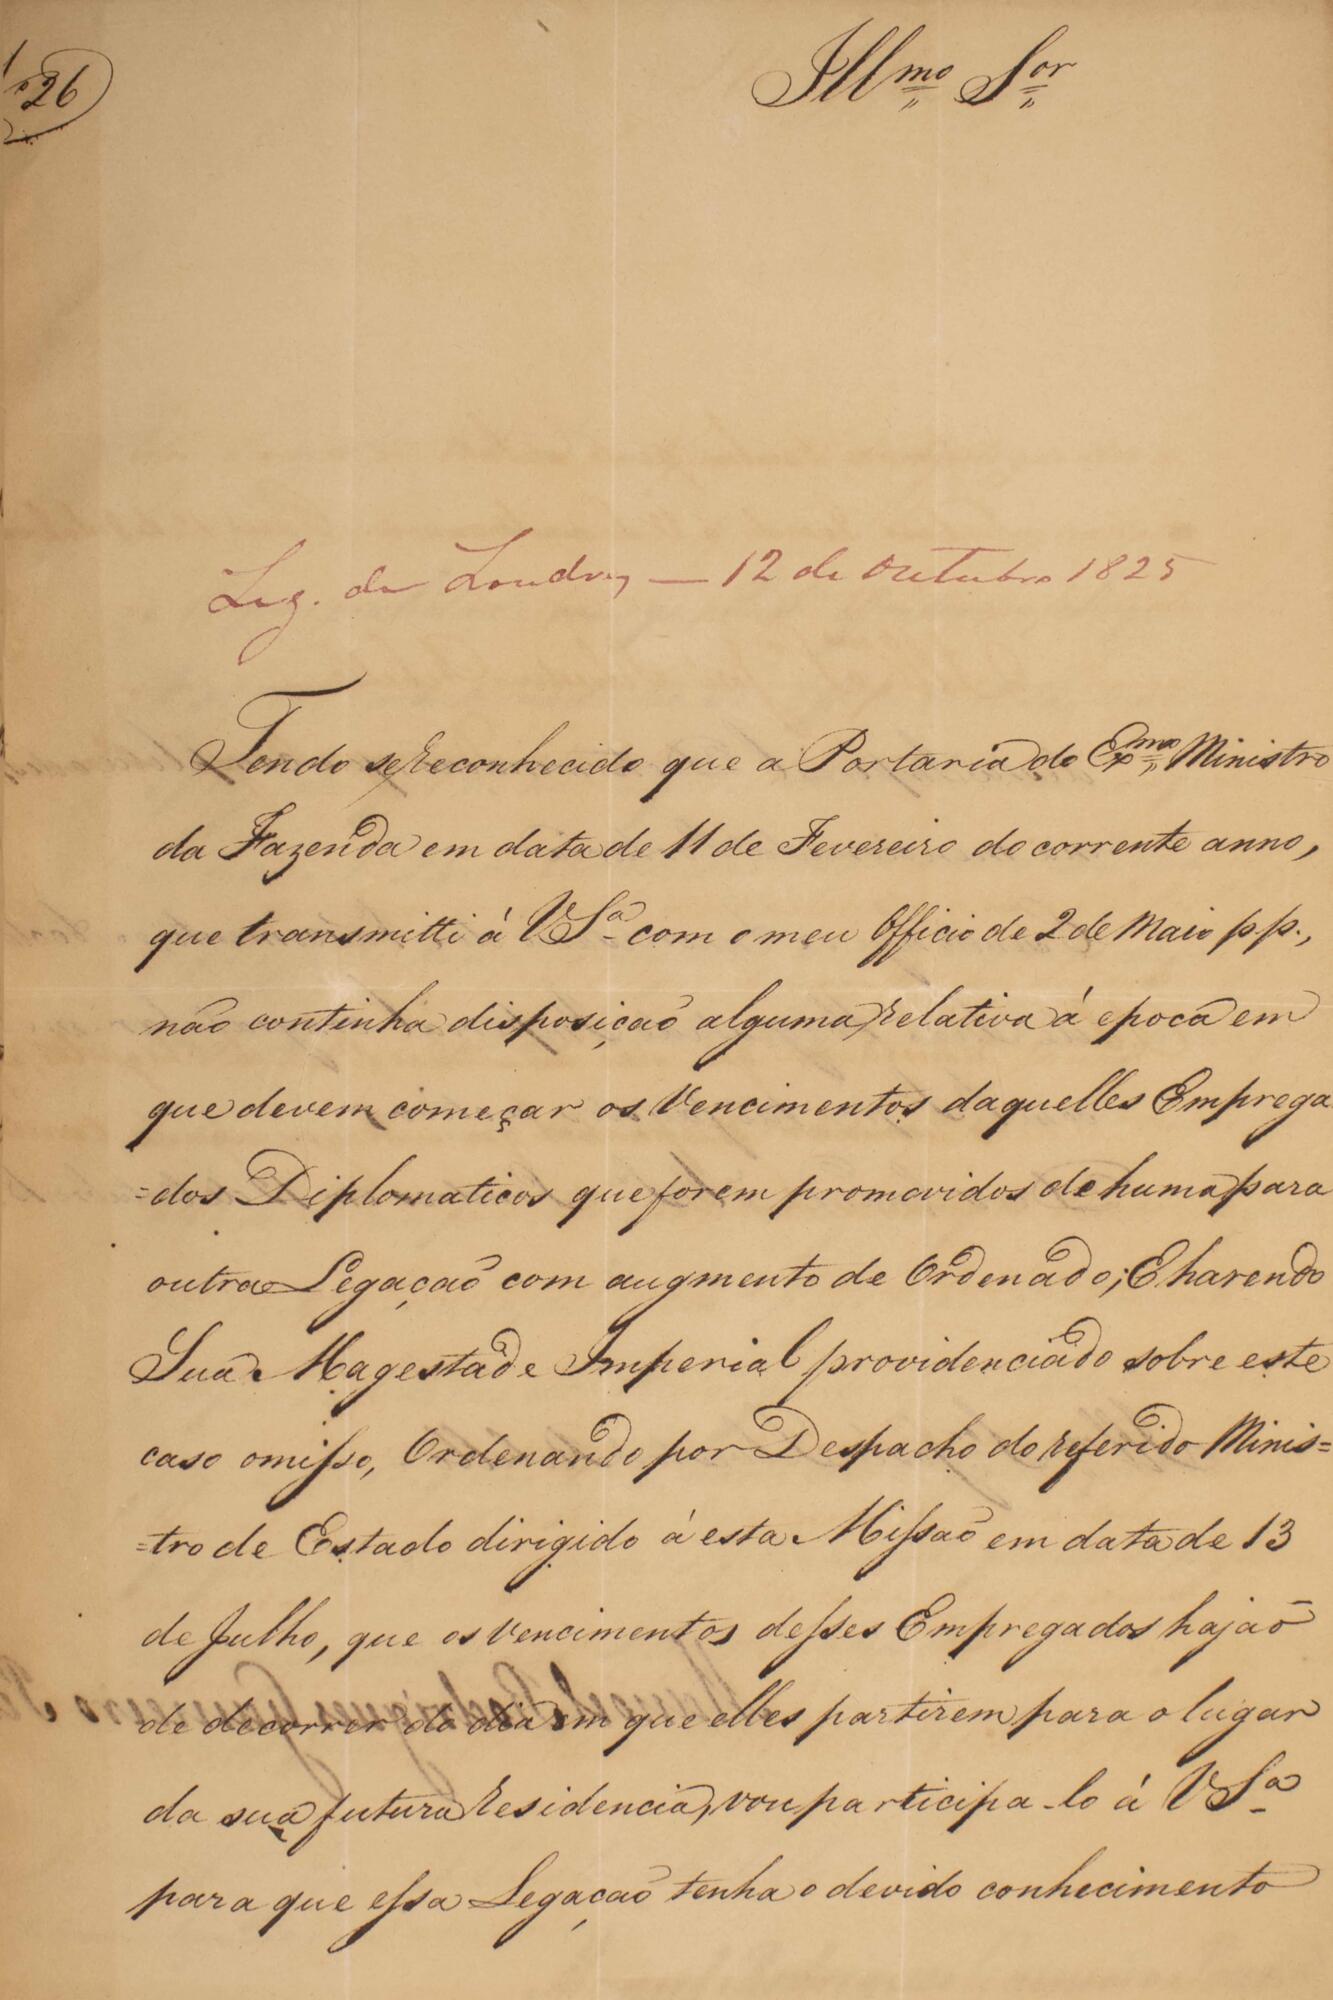 26
Illmo Sor
Leg. de Londres — 12 de Outubro 1825
Tendo se reconhecido que a Portaria do Exmo Ministro
da Fazenda em data de 11 de Fevereiro do corrente anno,
que transmitti á VSa com o meu Officio de 2 de Maio pp.,
não continha disposição alguma relativa á epoca em
que devem começar os Vencimentos daquelles Emprega
=dos Diplomaticos que forem promovidos de huma para
outra Legação com augmento de Ordenado; E havendo
Sua Magestade Imperial providenciado sobre este
caso omisso, Ordenando por Despacho do referido Minis=
=tro de Estado dirigido á esta Missão em data de 13
de Julho, que os Vencimentos desses Empregados hajaõ
de decorrer do dia em que elles partirem para o lugar
da sua futura residencia, vou participa-lo á VSa
para que essa Legação tenha o devido conhecimento